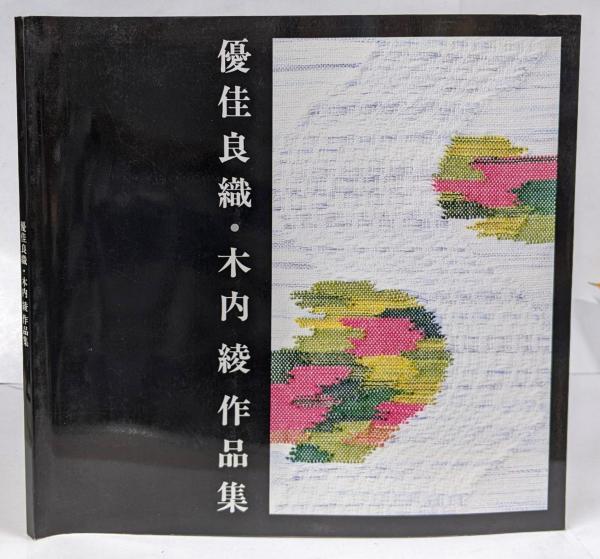 優佳良織・木内 綾 作品集
優佳良織・木内 綾 作品集